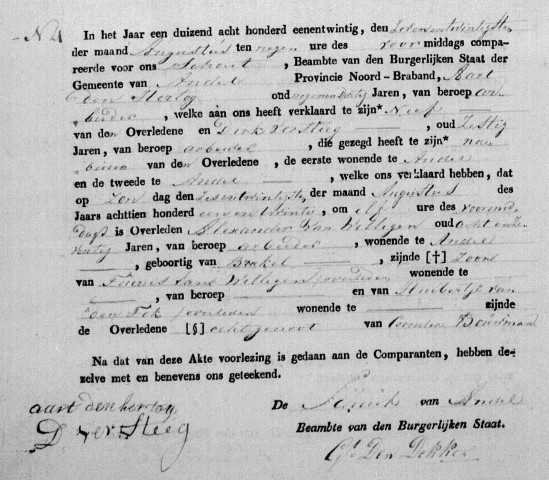 N 4
In het Jaar een duizend acht honderd eenentwintig, den Zevenentwintigsten
der maand Augustus ten negen ure des voor middags compa-
reerde voor ons Schout, Beambte van den Burgerlijken Staat der
Gemeente van Andel Provincie Noord-Braband, Aart
den Hertog oud negenendertig Jaren, van beroep ar-
beider, welke aan ons heeft verklaard te zijn* Neef
van den Overledene en Dirk Versteeg, oud Zestig
Jaren, van beroep arbeider, die gezegd heeft te zijn* na-
buur van den Overledene, de eerste wonende te Andel
en de tweede te Andel, welke ons verklaard hebben, dat
op Zon dag den Zesentwintigsten der maand Augustus des
Jaars achttien honderd eenentwintig, om elf ure des voormid-
dags is Overleden Alexander van Willigen oud acht en
Jaren, van beroep arbeider, wonende te Andel
, geboortig van Brakel, zijnde [†] Zoon
van Teunis van Willigen overleden wonende te
, van beroep en van Huibertje van
den Tok overleden wonende te zijnde
de Overledene [§] echtgenoot van Cornelia
Na dat van deze Akte voorlezing is gedaan aan de Comparanten, hebben de-
zelve met en benevens ons geteekend.
aart den hertog De Schout van Andel
D Versteeg Beambte van den Burgerlijken Staat.
Den Dekker